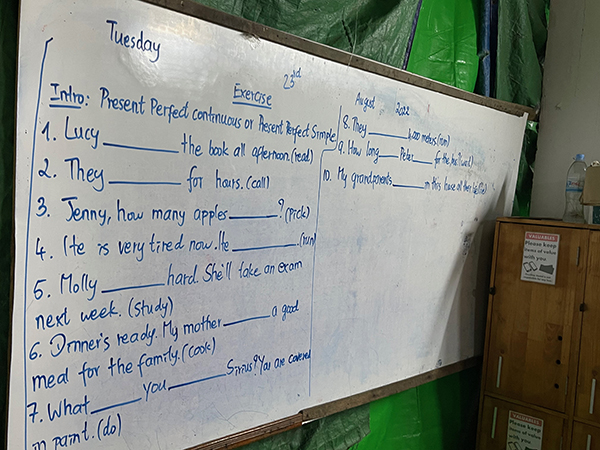 Tuesday
23rd
August 2022
Exercise
Intro: Present Perfect continuous or Present Perfect Simple
1. Lucy ________ the book all afternoon.(read)
2. They ________ for hours. (call)
3. Jenny, how many apples ________? (pick)
4. He is very tired now. He ________. (run)
5. Molly ________ hard. She'll take an exam
next week. (study)
6. Dinner's ready. My mother ________ a good
meal for the family. (cook)
7. What ________ you ________ Sirius? You are covered
in paint. (do)
8. They ________ 4,000 meters (run)
9. How long ____ Peter ____ for the bus? (wait)
10. My grandparents ________ in this house all their life (live)
VALUABLES
Please keep
items of value
with you
VALUABLES
Please keep
items of value
with you